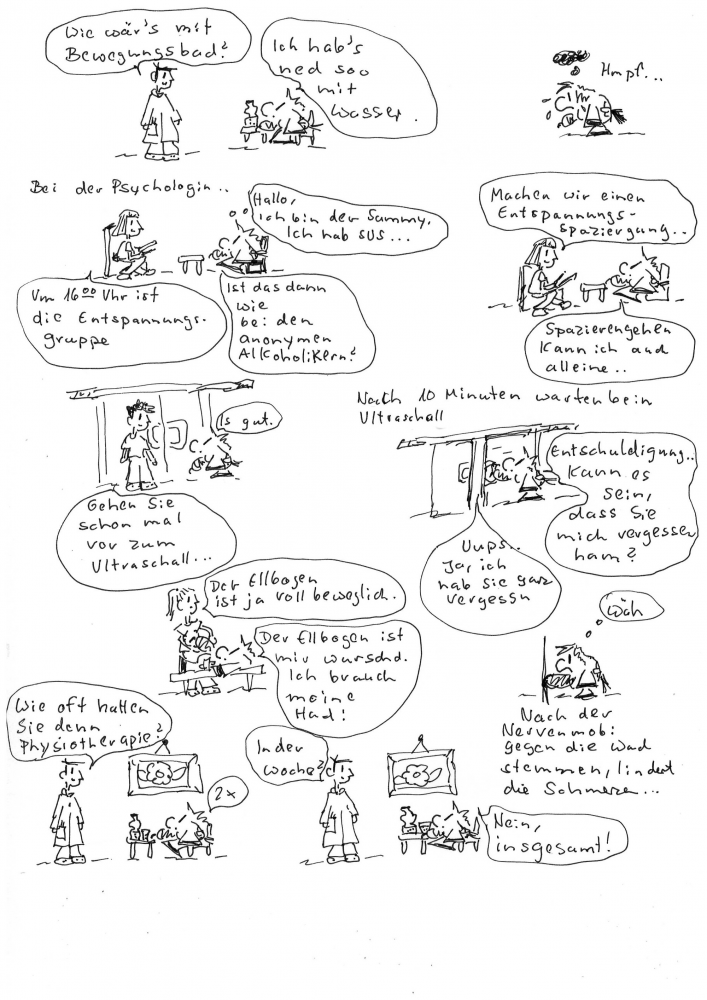 Wie wär's mit
Bewegungsbad?
Ich hab's
ned soo
mit
Wasser.
Hmpf...
Bei der Psychologin..
Hallo,
ich bin der Sammy,
Ich hab SUS...
Um 16 00 Uhr ist
die Entspannungs-
gruppe
Ist das dann
wie
bei den
anonymen
Alkoholikern?
Machen wir einen
Entspannungs-
spaziergang..
Spazierengehen
kann ich auch
alleine..
Gehen Sie
schon mal
vor zum
Ultraschall...
Is gut.
Nach 10 Minuten warten beim
Ultraschall
Entschuldigung..
Kann es
sein,
dass Sie
mich vergessen
ham?
Uups..
Ja, ich
hab sie ganz
vergessn
Der Ellbogen
ist ja voll beweglich.
Der Ellbogen ist
mir wurschd.
Ich brauch
meine
Had!
Wäh
Nach der
Nervenmob:
gegen die Wad
stemmen, lindert
die Schmerzen...
Wie oft hatten
Sie denn
Physiotherapie?
2x
In der
Woche?
Nein,
insgesamt!